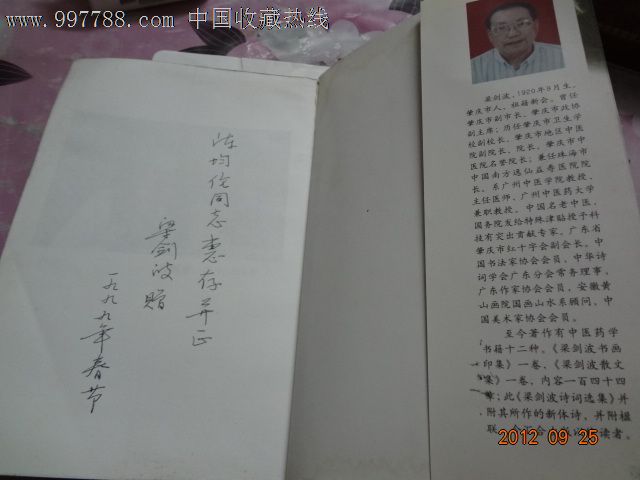 www.997788.com 中国收藏热线
陈均伦同志惠存并正
梁剑波 赠
一九九九年春节
梁剑波，1920年8月生，
肇庆市人，祖籍新会。曾任
肇庆市副市长、肇庆市政协
副主席；历任肇庆市卫生学
校副校长，肇庆市地区中医
院副院长、院长，肇庆市中
医院名誉院长；兼任珠海市
中国南方逸仙益寿医院院
长，系广州中医学院教授、
主任医师，广州中医药大学
兼职教授，中国名老中医，
国务院发给特殊津贴授予科
技有突出贡献专家。广东省
肇庆市红十字会副会长，中
国书法家协会会员，中华诗
词学会广东分会常务理事，
广东作家协会会员，安徽黄
山画院国画山水系顾问，中
国美术家协会会员。
至今著作有中医药学
书籍十二种。《梁剑波书画
印集》一卷，《梁剑波散文
集》一卷，内容一百四十四
章；此《梁剑波诗词选集》并
附其所作的新体诗，并附楹
联
读者。
2012 09 25